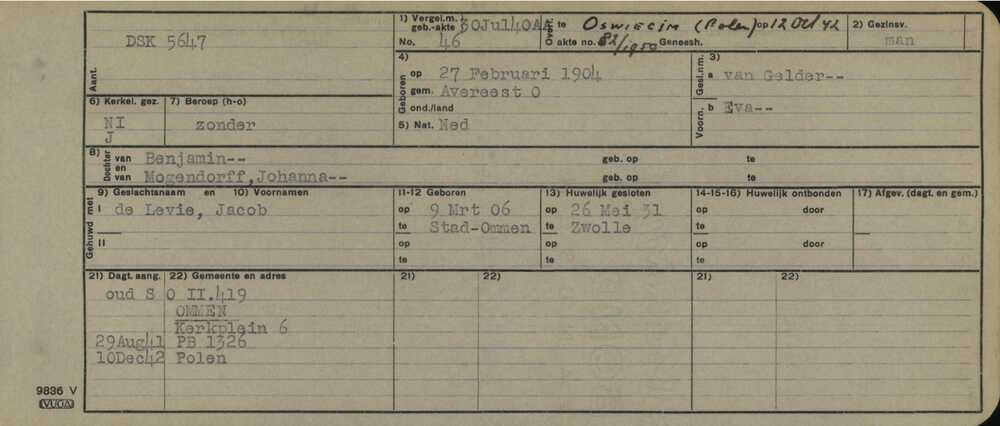 DSK 5647
Aant.
1) Vergel.m. geb.-akte 30Jul40AA
No. 46
Overl. te Oswiecim (Polen) op 12 Oct 42
O akte no. 82/1950 Geneesh.
2) Gezinsv.
man
4) Geboren
op 27 Februari 1904
gem. Avereest O
ond./land
5) Nat. Ned
3)
Gesl.nm. a van Gelder--
Voorn. b Eva--
6) Kerkel. gez.
NI
J
7) Beroep (h-o)
zonder
8) Dochter van Benjamin-- geb. op te
en
van Mogendorff, Johanna-- geb. op te
Gehuwd met
9) Geslachtsnaam en 10) Voornamen
I de Levie, Jacob
II
11-12 Geboren
op 9 Mrt 06
te Stad-Ommen
op
te
13) Huwelijk gesloten
op 26 Mei 31
te Zwolle
op
te
14-15-16) Huwelijk ontbonden
op door
te
op door
te
17) Afgev. (dagt. en gem.)
21) Dagt. aang. 22) Gemeente en adres
oud S O II.419
OMMEN
Kerkplein 6
29Aug41 PB 1326
10Dec42 Polen
21) 22)
21) 22)
9836 V
VUGA